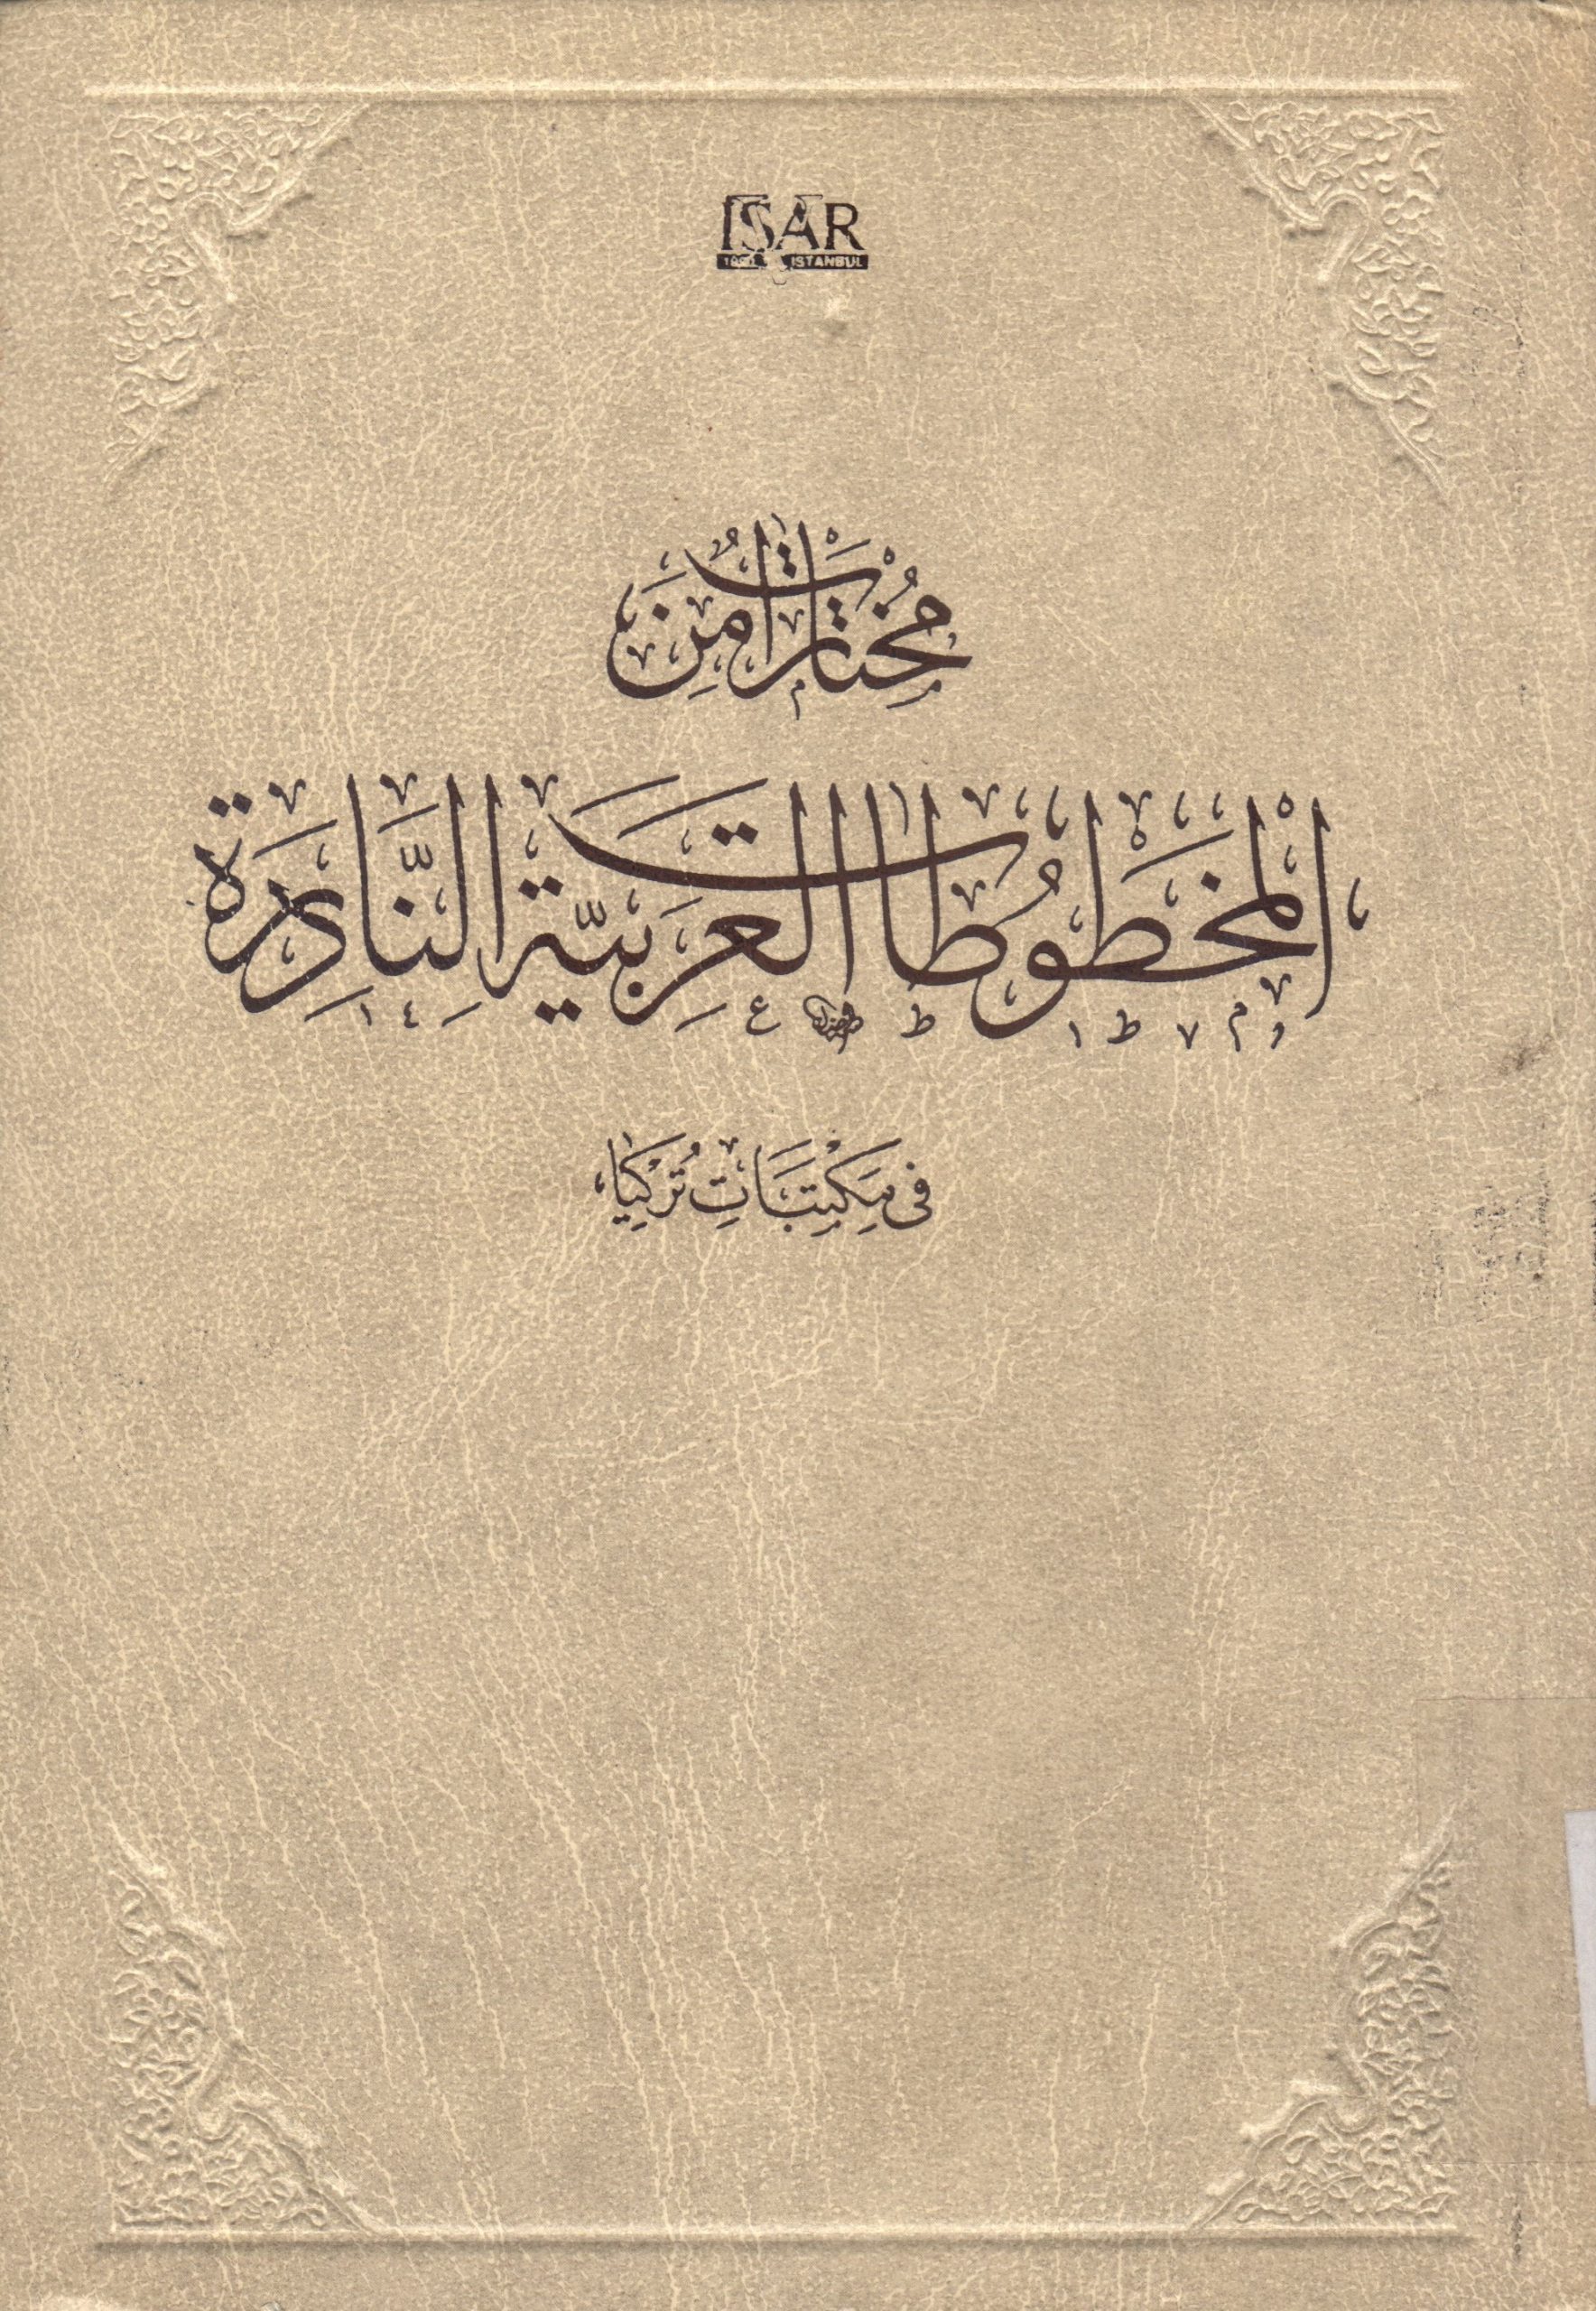 ISAR
ISTANBUL
مُخْتَارَاتٌ مِنَ
اَلْمَخْطُوطَاتِ الْعَرَبِيَّةِ النَّادِرَةِ
فى مَكْتَبَاتِ تُرْكِيَا